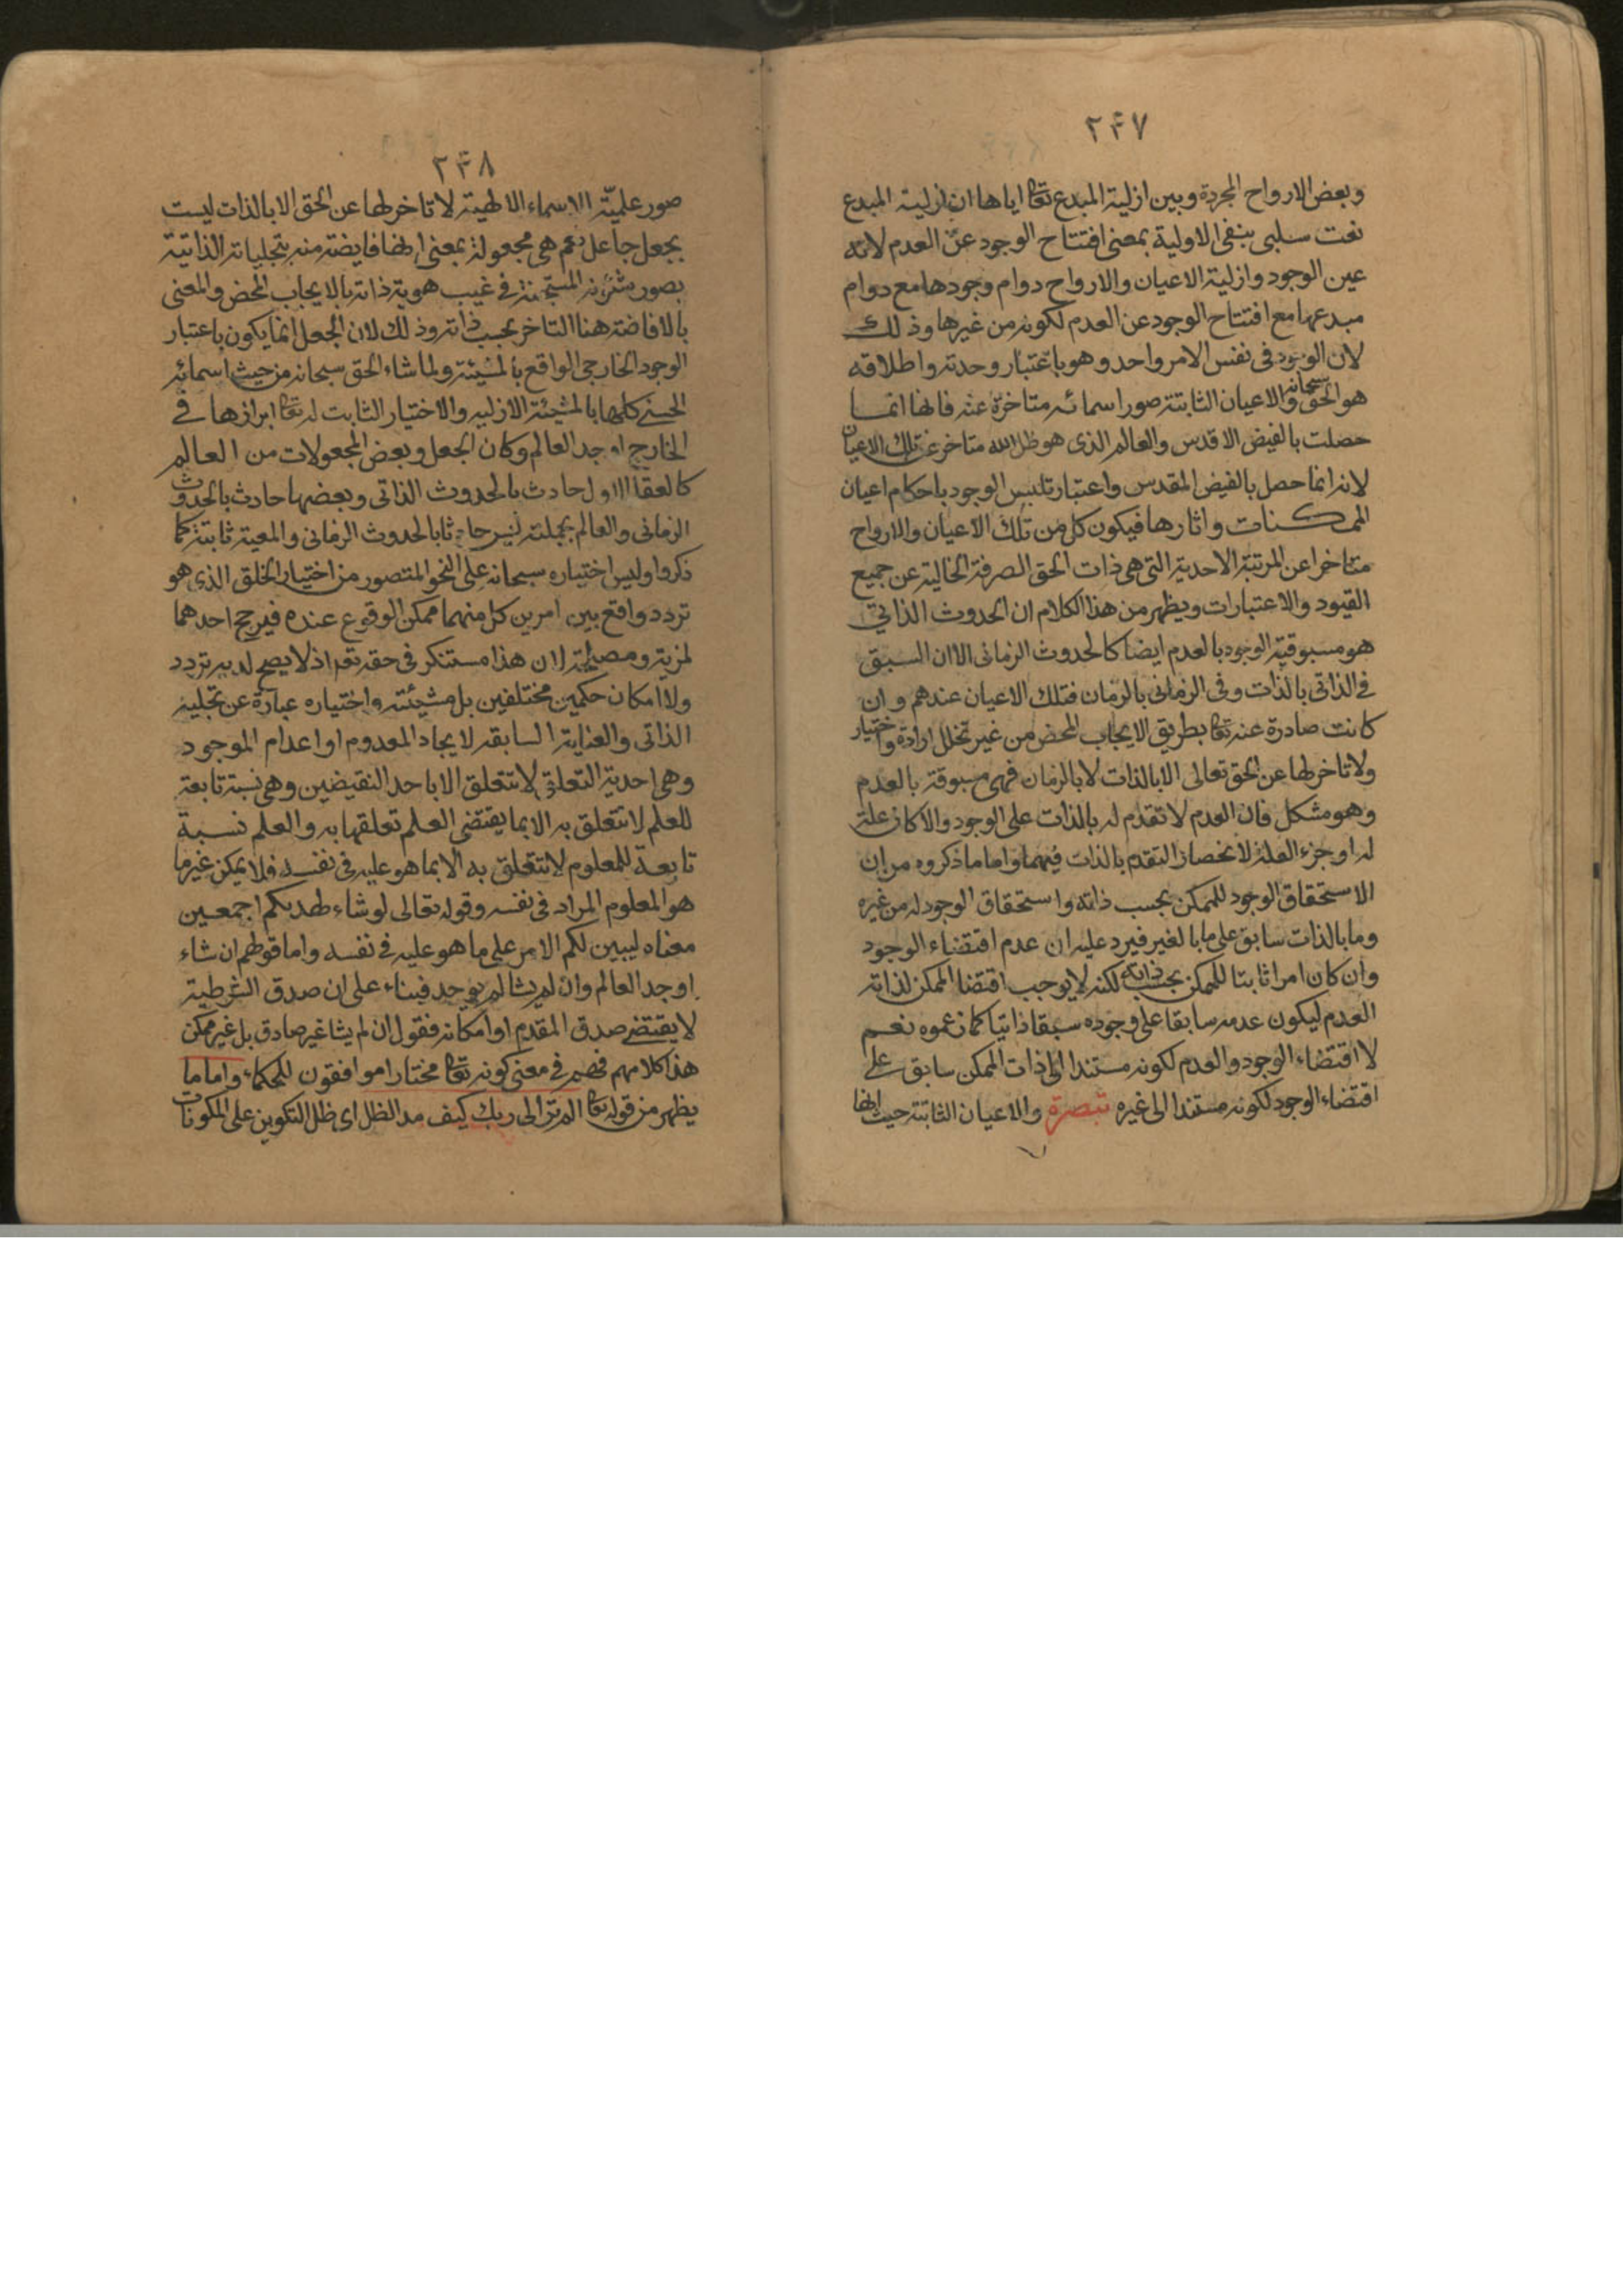 ٢٤٧
وبعض الارواح المجردة وبين ازلية المبدع تعا اياها ان ازلية المبدع
نعت سلبى ينفى الاولية بمعنى افتتاح الوجود عن العدم لانه
عين الوجود وازلية الاعيان والارواح دوام وجودها مع دوام
مبدعها مع افتتاح الوجود عن العدم لكونه من غيرها وذلك
لان الوجود فى نفس الامر واحد وهو باعتبار وحدته واطلاقه
هو الحق سبحانه والاعيان الثابتة صور اسمائه متاخرة عنه فانها انما
حصلت بالفيض الاقدس والعالم الذى هو ظل الله متاخر عن تلك الاعيان
لانه انما حصل بالفيض المقدس واعتبار تلبس الوجود باحكام اعيان
الممكنات واثارها فيكون كل من تلك الاعيان والارواح
متاخرا عن المرتبة الاحدية التى هى ذات الحق الصرفة الخالية عن جميع
القيود والاعتبارات ويظهر من هذا الكلام ان الحدوث الذاتى
هو مسبوقية الوجود بالعدم ايضا كالحدوث الزمانى الا ان السبق
فى الذاتى بالذات وفى الزمانى بالزمان فتلك الاعيان عندهم وان
كانت صادرة عنه تعا بطريق الايجاب المحض من غير تخلل ارادة واختيار
ولا تاخر لها عن الحق تعالى الا بالذات لا بالزمان فهى مسبوقة بالعدم
وهو مشكل فان العدم لا تقدم له بالذات على الوجود والا كان علة
له او جزء العلة لانحصار التقدم بالذات فيهما واما ما ذكروه من ان
الاستحقاق الوجود للممكن بحسب ذاته واستحقاق الوجود له من غيره
وما بالذات سابق على ما بالغير فيرد عليه ان عدم اقتضاء الوجود
وان كان امرا ثابتا للممكن بحسب ذاته لكنه لا يوجب اقتضا الممكن لذاته
العدم ليكون عدمه سابقا على وجوده سبقا ذاتيا كما زعموه نعم
لا اقتضاء الوجود والعدم لكونه مستندا الى ذات الممكن سابق على
اقتضاء الوجود لكونه مستندا الى غيره تبصرة والاعيان الثابتة حيث انها
٢٤٨
صور علمية الاسماء الالهية لا تاخر لها عن الحق الا بالذات ليست
بجعل جاعل نعم هى مجعولة بمعنى انها فايضة منه بتجلياته الذاتية
بصور شئونه المستجنة فى غيب هوية ذاته بالايجاب المحض والمعنى
بالافاضة هنا التاخر بحسب ذاته وذلك لان الجعل انما يكون باعتبار
الوجود الخارجى الواقع بالمشيئة ولما شاء الحق سبحانه من حيث اسمائه
الحسنى كلها بالمشيئة الازلية والاختيار الثابت له تعا ابرازها فى
الخارج اوجد العالم وكان الجعل وبعض المجعولات من العالم
كالعقل الاول حادث بالحدوث الذاتى وبعضها حادث بالحدوث
الزمانى والعالم بجملته ليس حادثا بالحدوث الزمانى والمعية ثابتة كما
ذكروا وليس اختياره سبحانه على النحو المتصور من اختيار الخلق الذى هو
تردد واقع بين امرين كل منهما ممكن الوقوع عنده فيرجح احدهما
لمزية ومصلحة لان هذا مستنكر فى حقه تعا اذ لا يصح لديه تردد
ولا امكان حكمين مختلفين بل مشيئته واختياره عبارة عن تجليه
الذاتى والعناية السابقة لايجاد المعدوم او اعدام الموجود
وهى احدية التعلق لا تتعلق الا باحد النقيضين وهى نسبة تابعة
للعلم لا تتعلق به الا بما يقتضى العلم تعلقها به والعلم نسبة
تابعة للمعلوم لا تتعلق به الا بما هو عليه فى نفسه فلا يمكن غير ما
هو المعلوم المراد فى نفسه وقوله تعالى لو شاء لهديكم اجمعين
معناه ليبين لكم الامر على ما هو عليه فى نفسه واما قولهم ان شاء
اوجد العالم وان لم يشا لم يوجد فبناء على ان صدق الشرطية
لا يقتضى صدق المقدم او امكانه فقول ان لم يشا غير صادق بل غير ممكن
هذا كلامهم فهم فى معنى كونه تعا مختارا موافقون للحكماء واما ما
يظهر من قوله تعا الم تر الى ربك كيف مد الظل اى ظل التكوين على المكونات